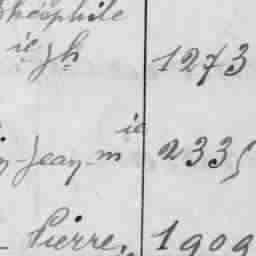 Théophile
ie Jh 1273
Jean-Mie 2335
Pierre, 1909